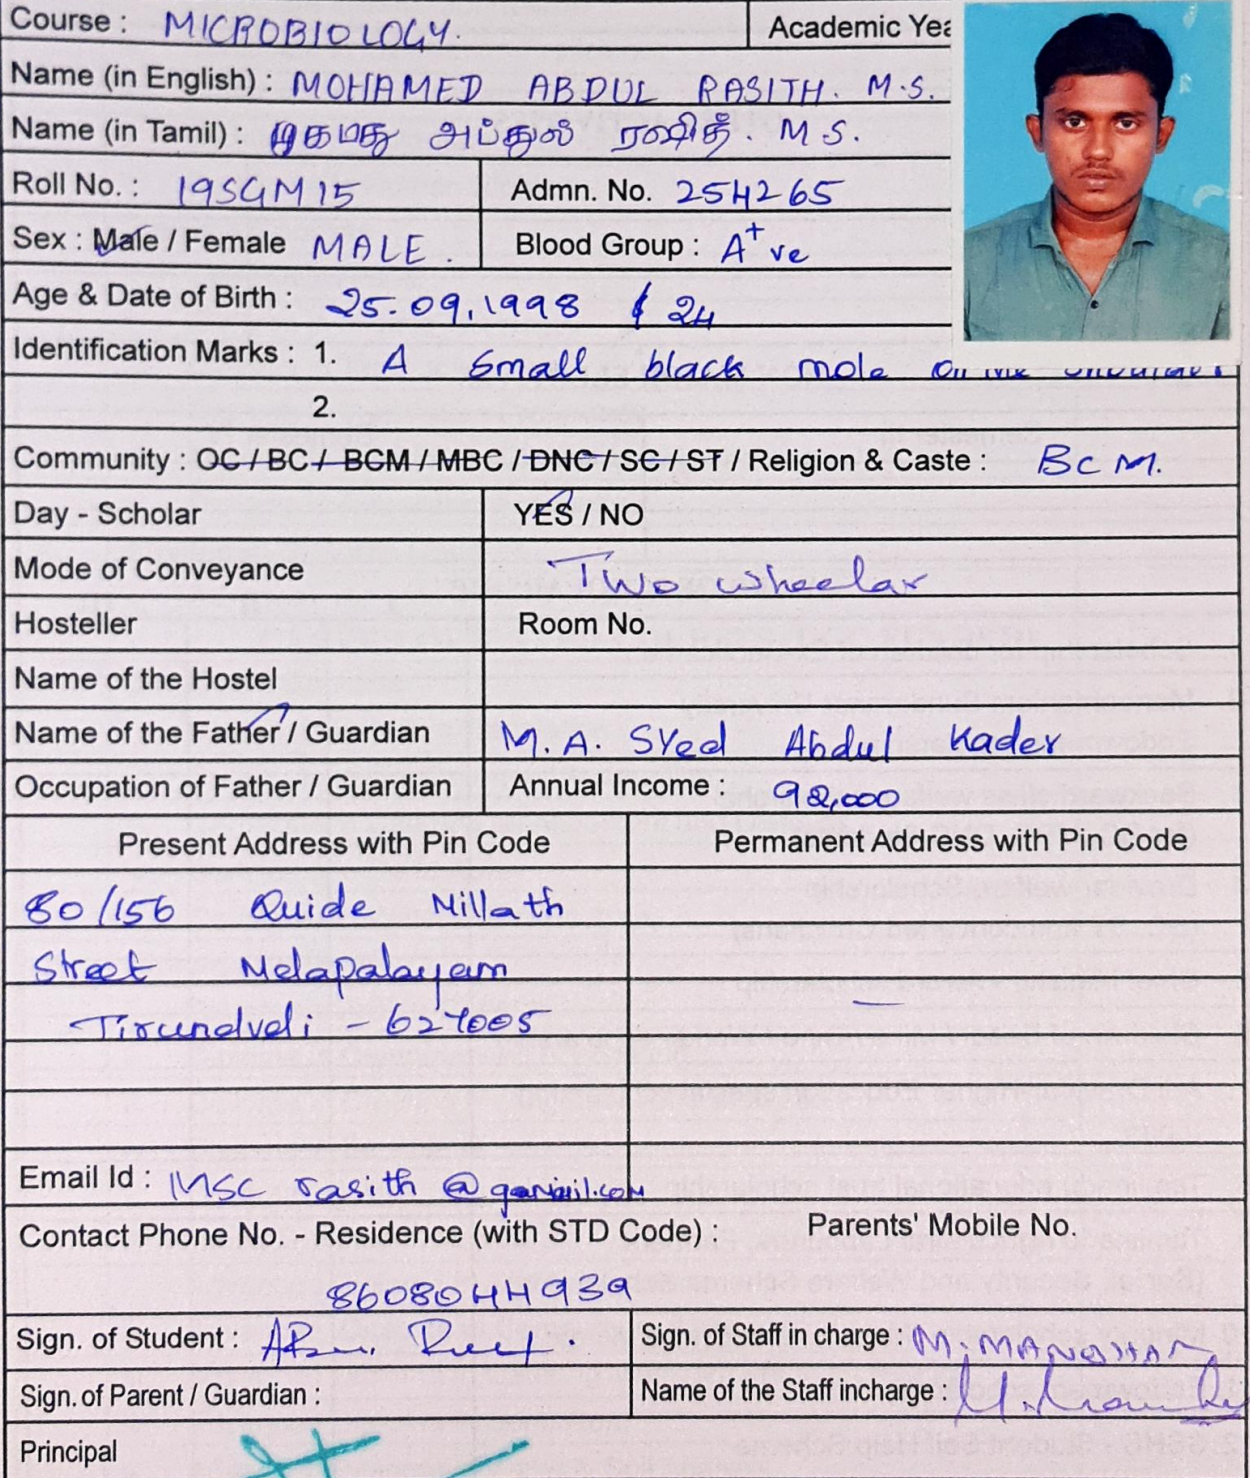 Course : MICROBIOLOGY.
Academic Yea
Name (in English) : MOHAMED ABDUL RASITH. M.S.
Name (in Tamil) : முகமது அப்துல் ரஷித். M S.
Roll No. : 19SGM15
Admn. No. 254265
Sex : Male / Female MALE.
Blood Group : A+ve
Age & Date of Birth : 25.09.1998 & 24
Identification Marks : 1. A small black mole on the
2.
Community : OC / BC / BCM / MBC / DNC / SC / ST / Religion & Caste : BCM.
Day - Scholar YES / NO
Mode of Conveyance Two wheelar
Hosteller Room No.
Name of the Hostel
Name of the Father / Guardian M. A. Syed Abdul Kader
Occupation of Father / Guardian Annual Income :
Present Address with Pin Code Permanent Address with Pin Code
80/156 Quide Millath
Street Melapalayam
Tirunelveli - 627005 —
Email Id : MSC rasith @
Contact Phone No. - Residence (with STD Code) : Parents' Mobile No.
8608044939
Sign. of Student : Sign. of Staff in charge : M. MANOHAR
Sign. of Parent / Guardian : Name of the Staff incharge :
Principal